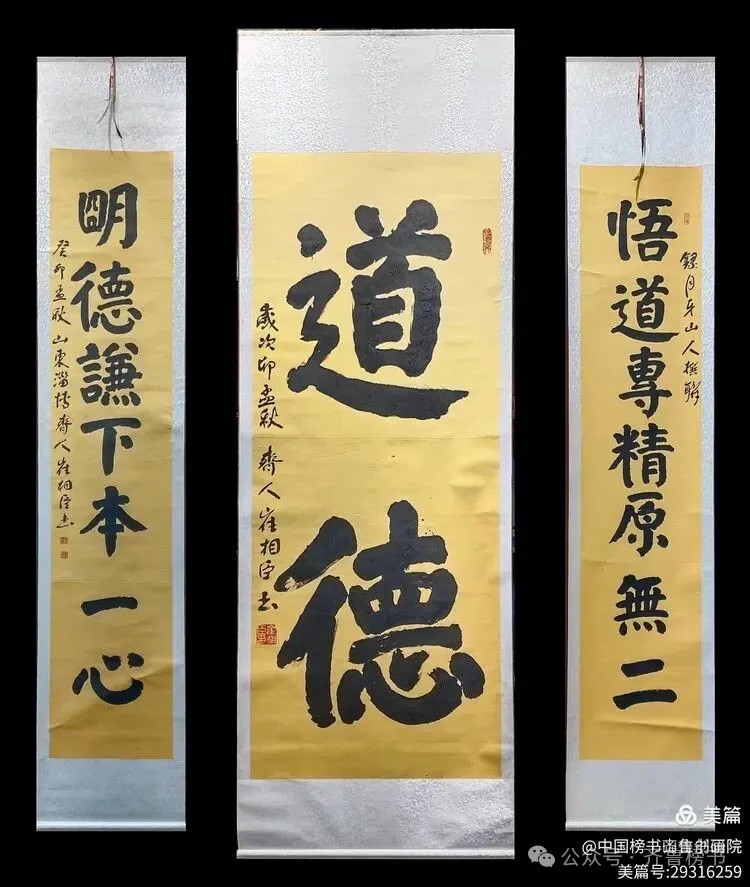 悟道專精原無二
錄月牙山人撰聯
道德
歲次卯孟秋 齊人崔相臣书
明德謙下本一心
癸卯孟秋山東淄博齊人崔相臣书
美篇
@中国榜书
公众号·齐鲁榜书
美篇号:29316259